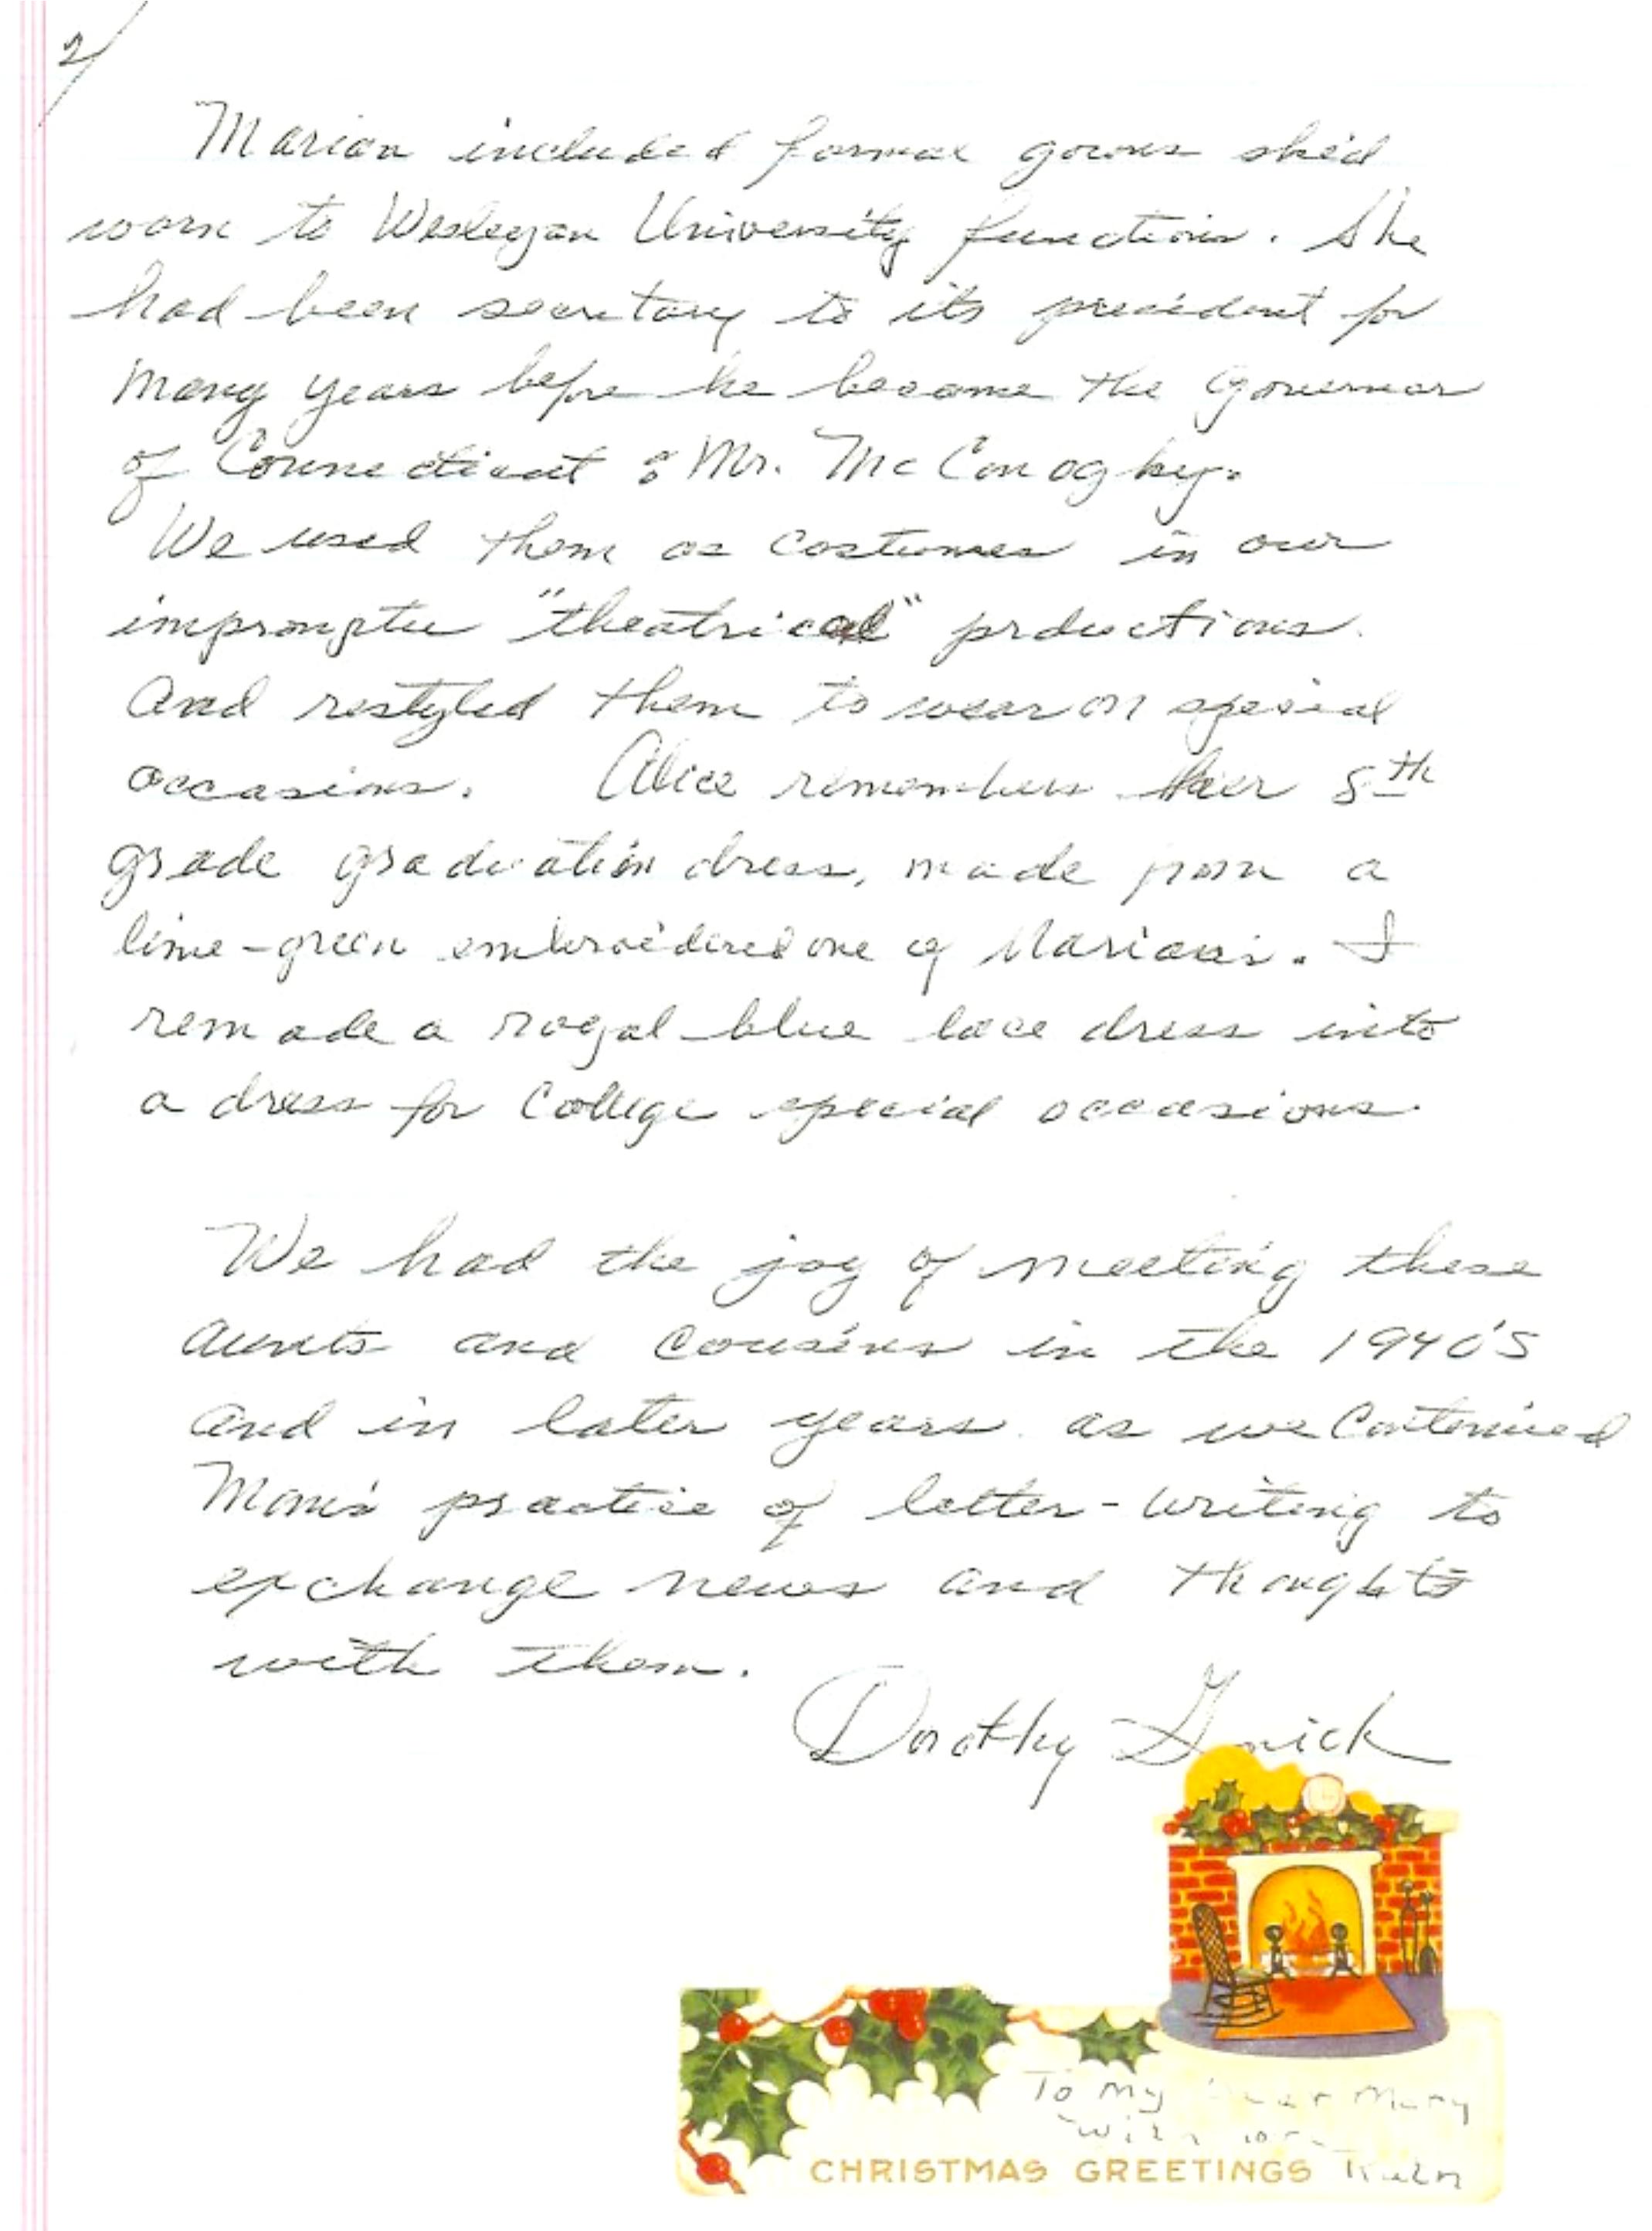 2/
Marian included formal gowns she'd
worn to Wesleyan University functions. She
had been secretary to its president for
many years before he became the Governor
of Connecticut : Mr. McConoghy.
We used them as costumes in our
impromptu "theatrical" prductions.
And restyled them to wear on special
occasions. Alice remembers her 8th
grade graduation dress, made from a
lime-green embroidered one of Marian's. I
remade a royal blue lace dress into
a dress for College special occasions.
We had the joy of meeting these
aunts and cousins in the 1940's
and in later years as we continued
Mom's practice of letter-writing to
exchange news and thoughts
with them.
Dorothy
To My Dear Mary
With
CHRISTMAS GREETINGS